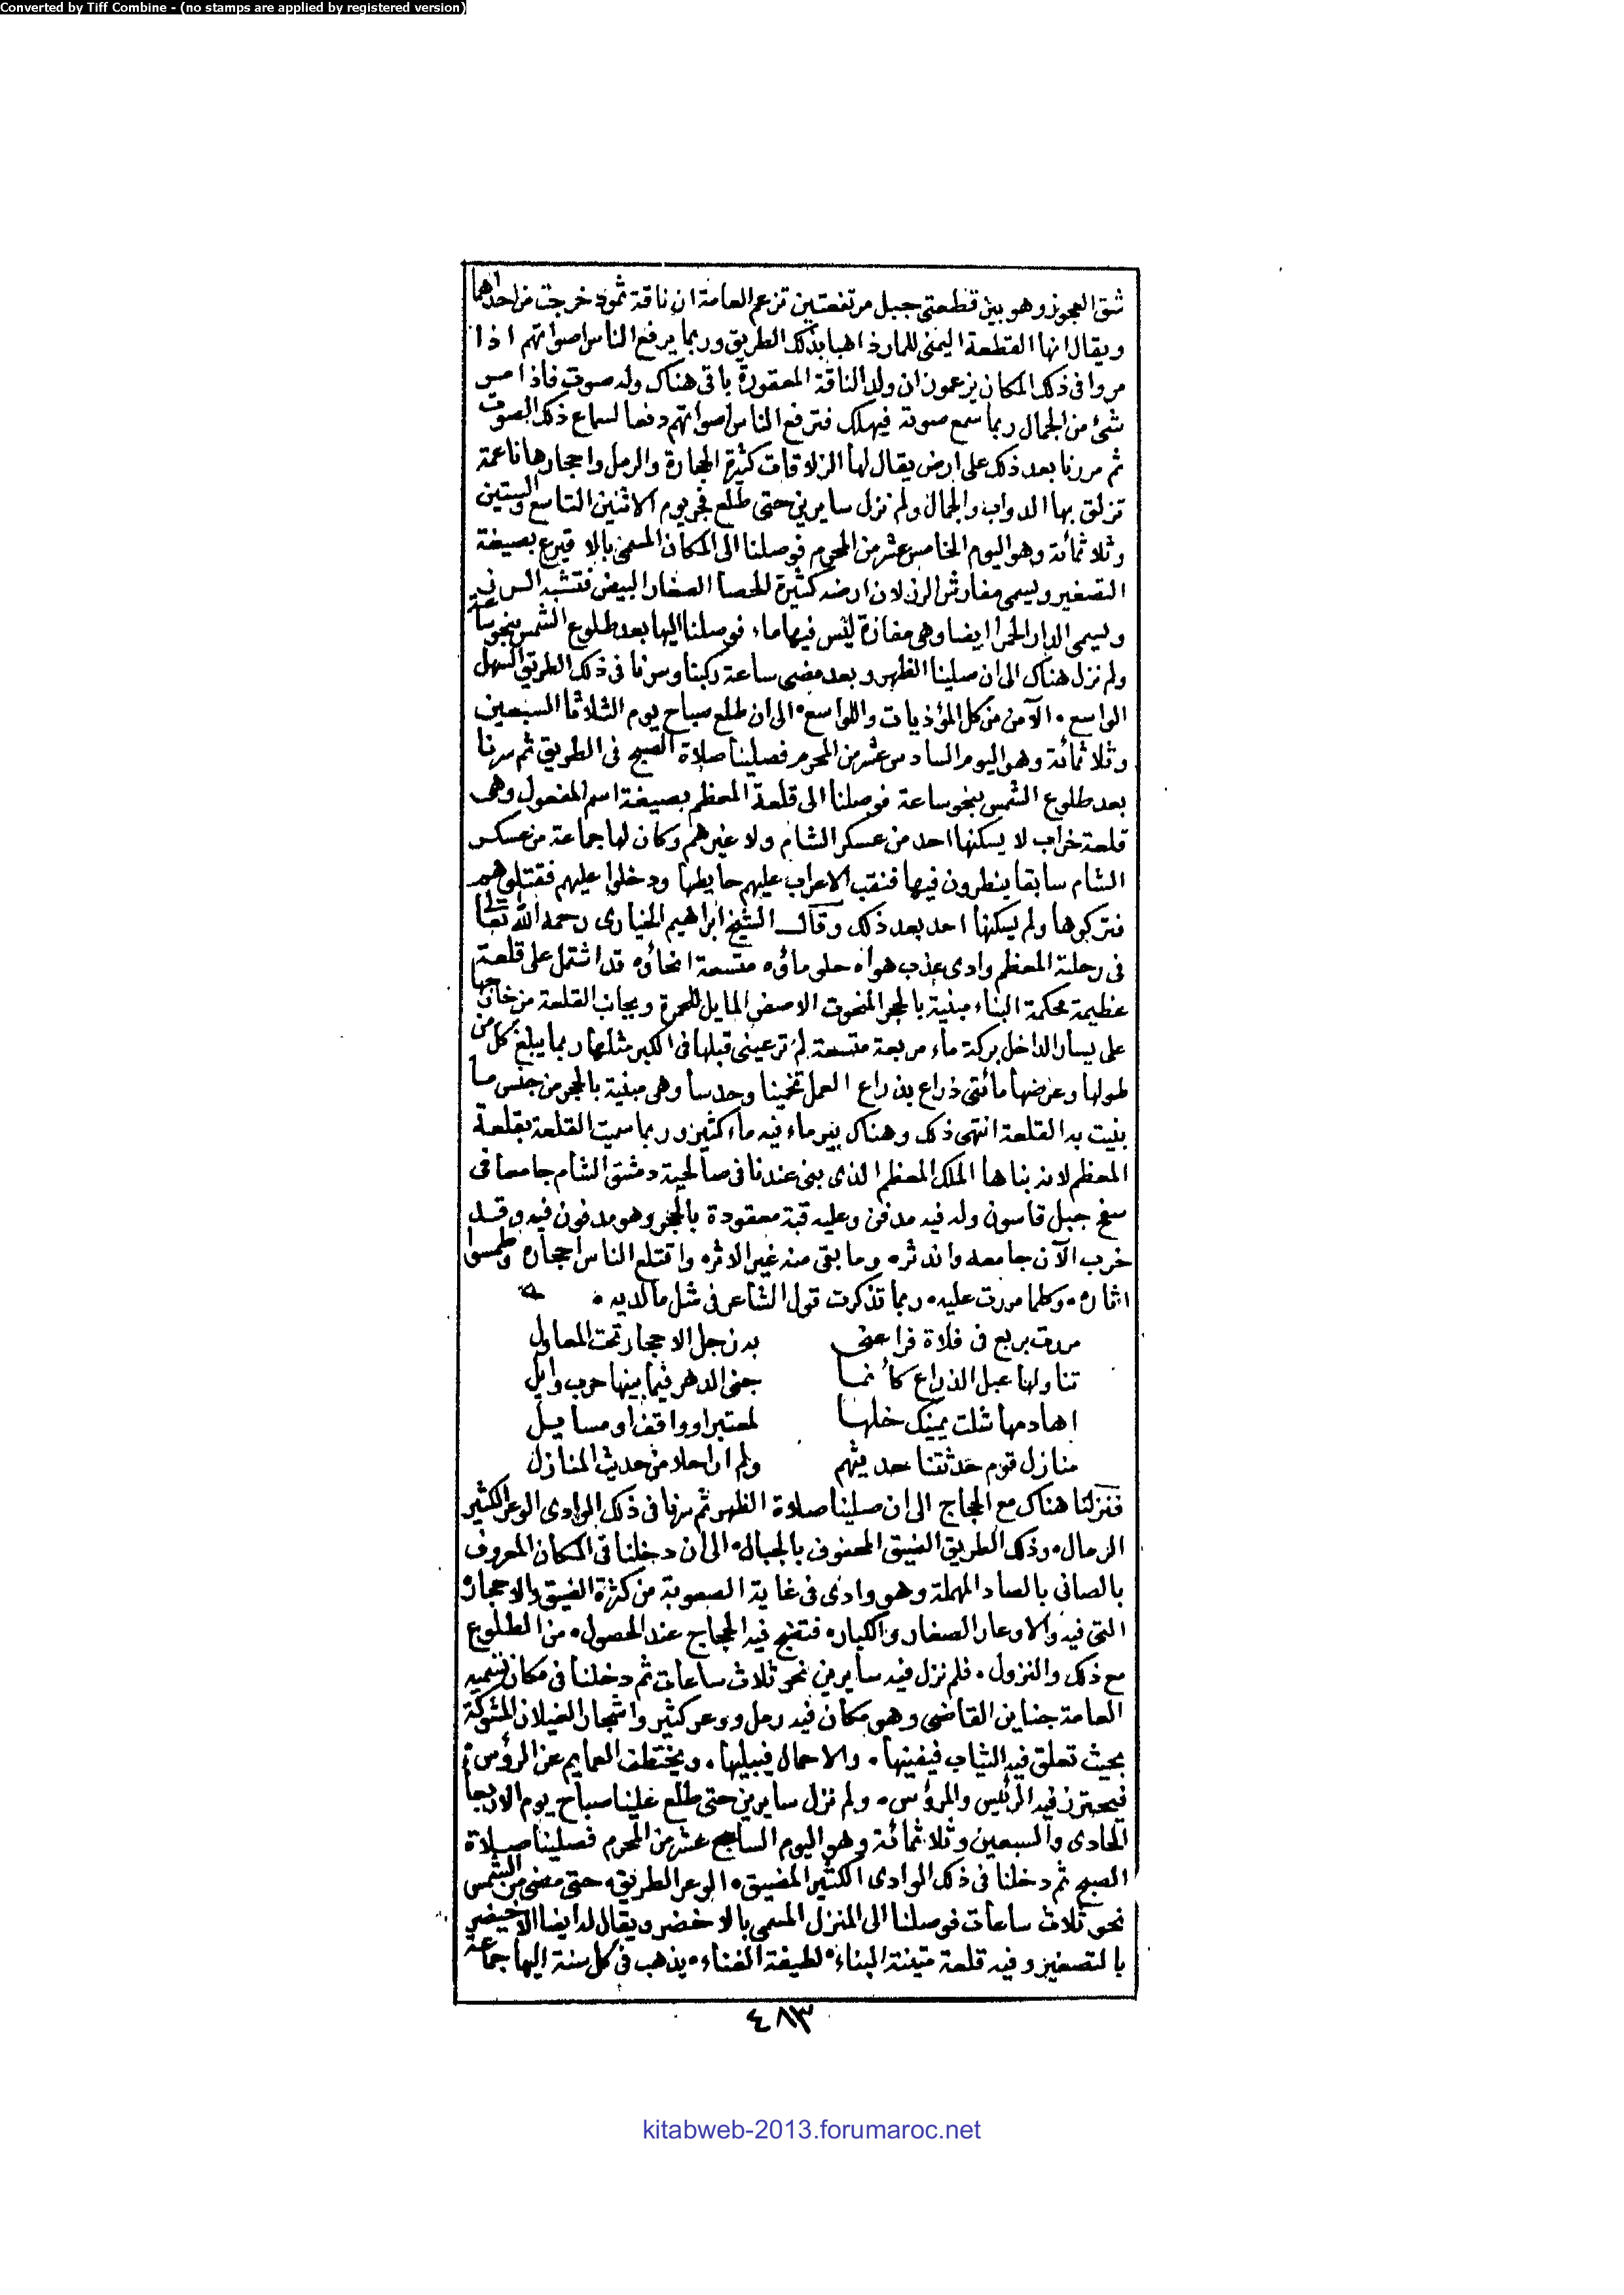 Converted by Tiff Combine - (no stamps are applied by registered version)
شق العجوز وهو بين قطعتي جبل مرتفعتين تزعم العامة ان ناقة ثمود خرجت من احداهما
ويقال انها القطعة اليمنى للمار ذاهبا بذلك الطريق وربما يرفع الناس اصواتهم اذا
مروا في ذلك المكان يزعمون ان ولد الناقة المعقورة باقى هناك وله صوت فاذا مر
شئ من الجمال ربما سمع صوته فيهلك فترفع الناس اصواتهم دفعا لسماع ذلك الصوت
ثم مررنا بعد ذلك على ارض يقال لها الزلاقات كثيرة الحجارة والرمل واحجارها ناعمة
تزلق بها الدواب والجمال ولم نزل سايرين حتى طلع فجر يوم الاثنين التاسع والستين
وثلاثمائة وهو اليوم الخامس عشر من المحرم فوصلنا الى المكان المسمى بالاقيرع بصيغة
التصغير ويسمى مفارش الرز لان ارضه كثيرة الحصا الصغار البيض فتشبه الرز
ويسمى الدار الحمرا ايضا وهى مفازة ليس فيها ماء فوصلنا اليها بعد طلوع الشمس بنحو ساعة
ولم نزل هناك الى ان صلينا الظهر وبعد مضى ساعة ركبنا وسرنا في ذلك الطريق السهل
الواسع ۰ الآمن من كل المؤذيات واللواسع ۰ الى ان طلع صباح يوم الثلاثا السبعين
وثلاثمائة وهو اليوم السادس عشر من المحرم فصلينا صلاة الصبح في الطريق ثم سرنا
بعد طلوع الشمس بنحو ساعة فوصلنا الى قلعة المعظم بصيغة اسم المفعول وهى
قلعة خراب لا يسكنها احد من عسكر الشام ولا غيرهم وكان لها جماعة من عسكر
الشام سابقا ينطرون فيها فنقب الاعراب عليهم حايطها ودخلوا عليهم فقتلوهم
فتركوها ولم يسكنها احد بعد ذلك وقال الشيخ ابراهيم الخيارى رحمه الله تعالى
في رحلته المعظم وادى عذب هواه حلو ماؤه متسعة انحاؤه قد اشتمل على قلعة
عظيمة محكمة البناء مبنية بالحجر المنحوت الاصفر المايل للحمرة وبجانب القلعة من خارجها
على يسار الداخل بركة ماء مربعة متسعة لم تر عينى قبلها في الكبر مثلها ربما يبلغ كل من
طولها وعرضها مائتى ذراع بذراع العمل تخمينا وحدسا وهى مبنية بالحجر من جنس ما
بنيت به القلعة انتهى ذلك وهناك بير ماء فيه ماء كثير وربما سميت القلعة بقلعة
المعظم لانه بناها الملك المعظم الذى بنى عندنا في صالحية دمشق الشام جامعا في
سفح جبل قاسون وله فيه مدفن وعليه قبة معقودة بالحجر وهو مدفون فيه وقد
خرب الآن جامعه واندثره وما بقى منه غير الاثره واقتلع الناس احجاره وطمسوا
اثاره ۰ وكلما مررت عليه ۰ ربما تذكرت قول الشاعر في مثل ما لديه ۰
مررت بربع في فلاة فراعنى بدن جل الاحجار تحت المعاول
تناولها عبل الذراع كأنما جنى الدهر فيما بينها حرب وايل
اهادمها شلت يمينك خلها لمعتبر او واقف او مسايل
منازل قوم حدثتنا حديثهم ولم ار احلا من حديث المنازل
فنزلنا هناك مع الحجاج الى ان صلينا صلاة الظهر ثم سرنا في ذلك الوادى الوعر الكثير
الرمال ۰ وذلك الطريق الضيق المحفوف بالجبال ۰ الى ان دخلنا في المكان المعروف
بالصانى بالصاد المهملة وهو وادى في غاية الصعوبة من كثرة الضيق والاحجار
التى فيه والاوعار الصغار والكبار ۰ فتضج فيه الحجاج عند الحصول ۰ من الطلوع
مع ذلك والنزول ۰ فلم نزل فيه سايرين نحو ثلاث ساعات ثم دخلنا في مكان تسميه
العامة جناين القاضى وهو مكان فيه رمل ووعر كثير واشجار الغيلان المشوكة
بحيث تعلق فيه الثياب فيفنيها ۰ والاحمال فيبليها ۰ ويختطف العمايم عن الرؤس ۰
فيحترز فيه الرئيس والمرؤس ۰ ولم نزل سايرين حتى طلع علينا صباح يوم الاربعا
الحادى والسبعين وثلاثمائة وهو اليوم السابع عشر من المحرم فصلينا صلاة
الصبح ثم دخلنا في ذلك الوادى الكثير المضيق ۰ الوعر الطريق ۰ حتى مضى من الشمس
نحو ثلاث ساعات فوصلنا الى المنزل المسمى بالاخضر ويقال له ايضا الاخيضر
بالتصغير وفيه قلعة متينة البناء ۰ لطيفة الفناء ۰ يذهب في كل سنة اليها جماعة
٤٨٣
kitabweb-2013.forumaroc.net